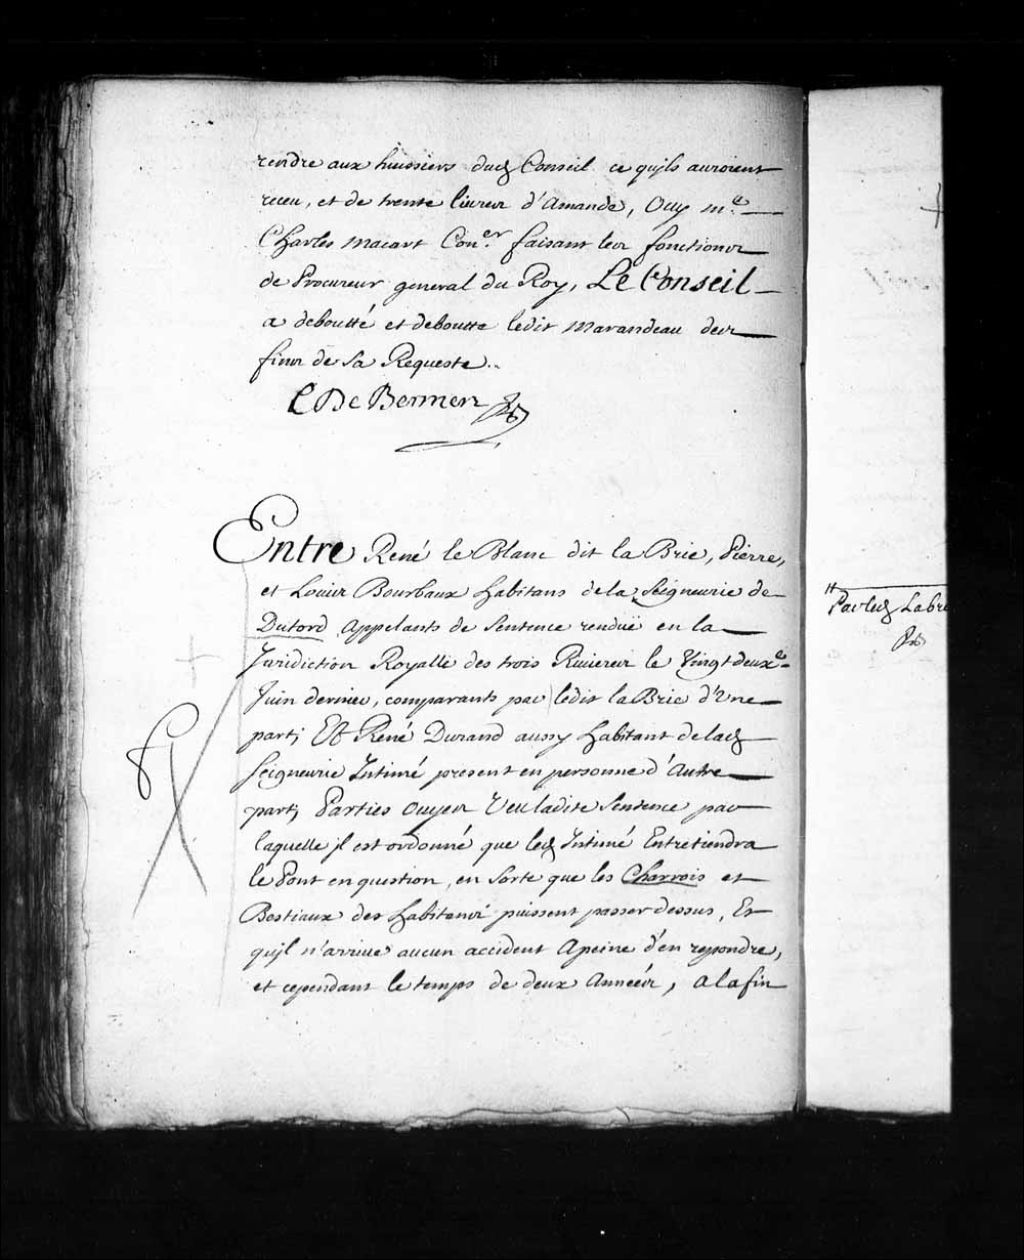 rendre aux huissiers dud Conseil ce quils auroient
receu, et de trente livres d'Amande, Ouy me.
Charles macart Coner. faisant les fonctions
de Procureur general du Roy, Le Conseil
a deboutté et deboutte ledit marandeau des
fins de sa Requeste..
C De Bermen
Entre René le Blanc dit la Brie, Pierre,
et Louis Bourbaux habitans dela Seigneurie de
Dutord Appelants de Sentence renduë en la
Juridiction Royalle des trois Rivieres le Vingt deuxe.
Juin dernier, comparants par ledit la Brie d'Une
part; Et René Durand aussy habitant delad
Seigneurie Intimé present en personne d'Autre
part; Parties Ouyes Veu ladite Sentence par
laquelle jl est ordonné que led Intimé Entretiendra
le Pont en question, en sorte que les Charrois et
Bestiaux des habitans puissent passer dessus, Et
qujl n'arrive aucun accident Apeine d'en repondre,
et cependant le temps de deux Années, a la fin
Par led Labr